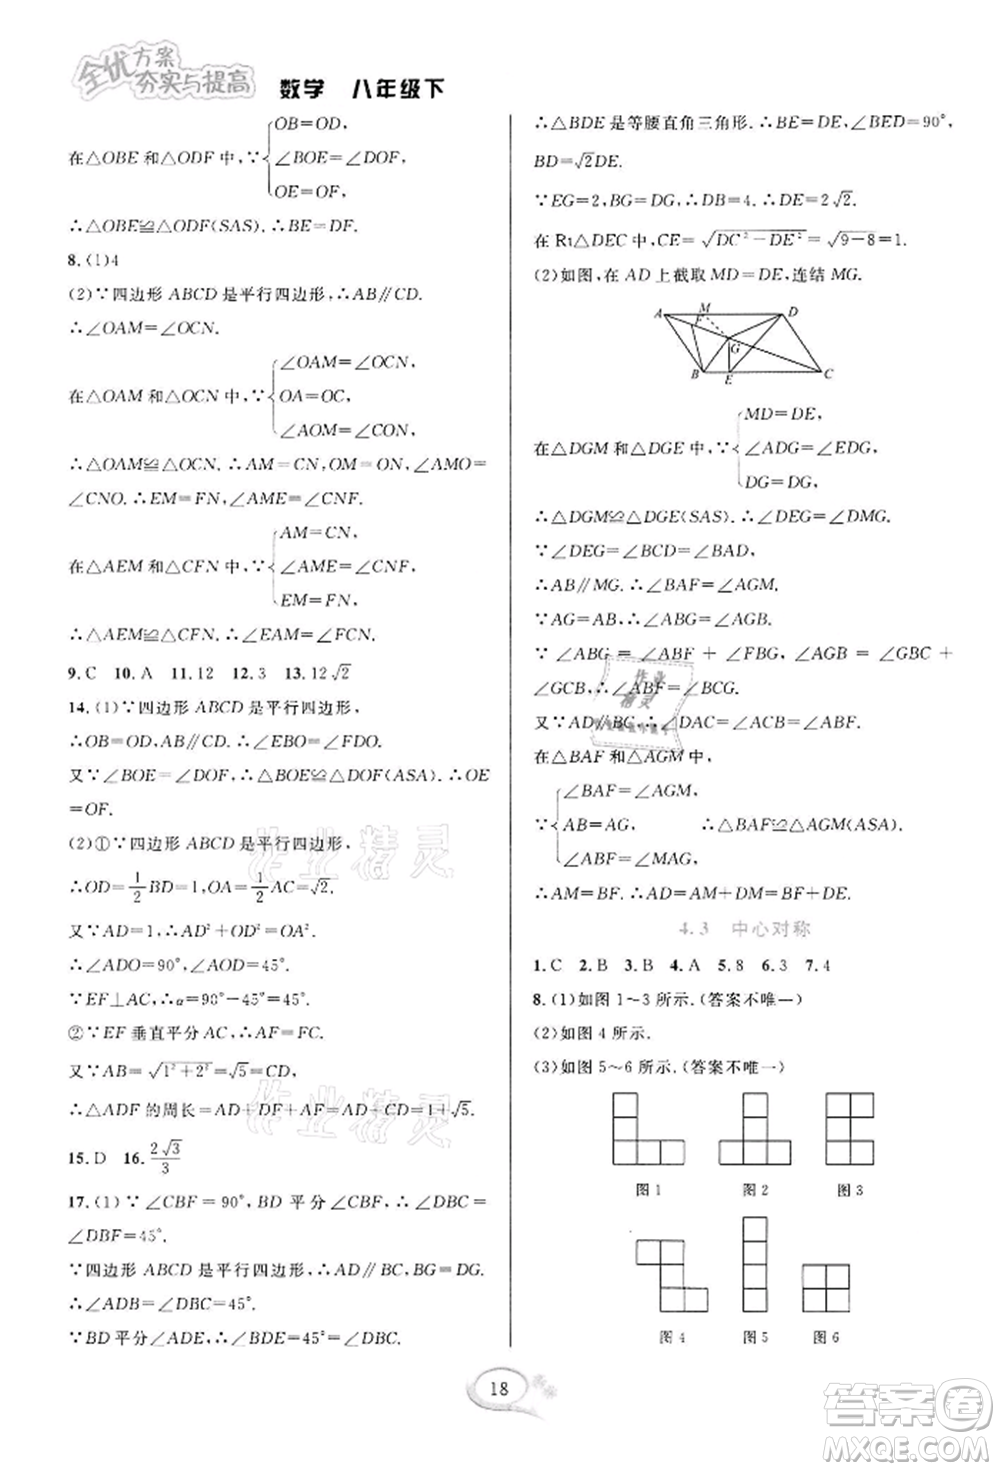 全优方案
夯实与提高
数学 八年级下
OB=OD,
在△OBE 和△ODF 中,∵ ∠BOE=∠DOF,
OE=OF,
∴△OBE≌△ODF(SAS).∴BE=DF.
8.(1)4
(2)∵四边形 ABCD 是平行四边形,∴AB∥CD.
∴∠OAM=∠OCN.
∠OAM=∠OCN,
在△OAM 和△OCN 中,∵ OA=OC,
∠AOM=∠CON,
∴△OAM≌△OCN.∴AM=CN,OM=ON,∠AMO=
∠CNO.∴EM=FN,∠AME=∠CNF.
AM=CN,
在△AEM 和△CFN 中,∵ ∠AME=∠CNF,
EM=FN,
∴△AEM≌△CFN.∴∠EAM=∠FCN.
9.C 10.A 11.12 12.3 13.12√2
14.(1)∵四边形 ABCD 是平行四边形,
∴OB=OD,AB∥CD.∴∠EBO=∠FDO.
又∵∠BOE=∠DOF,∴△BOE≌△DOF(ASA).∴OE
=OF.
(2)①∵四边形 ABCD 是平行四边形,
∴OD=1/2BD=1,OA=1/2AC=√2.
又∵AD=1,∴AD²+OD²=OA².
∴∠ADO=90°.∴∠AOD=45°.
∵EF⊥AC,∴α=90°-45°=45°.
②∵EF 垂直平分 AC,∴AF=FC.
又∵AB=√(1²+2²)=√5=CD,
∴△ADF 的周长=AD+DF+AF=AD+CD=1+√5.
15.D 16.2√3/3
17.(1)∵∠CBF=90°,BD 平分∠CBF,∴∠DBC=
∠DBF=45°.
∵四边形 ABCD 是平行四边形,∴AD∥BC,BG=DG.
∴∠ADB=∠DBC=45°.
∵BD 平分∠ADE,∴∠BDE=45°=∠DBC.
∴△BDE 是等腰直角三角形.∴BE=DE,∠BED=90°,
BD=√2DE.
∵EG=2,BG=DG,∴DB=4.∴DE=2√2.
在 Rt△DEC 中,CE=√(DC²-DE²)=√(9-8)=1.
(2)如图,在 AD 上截取 MD=DE,连结 MG.
A M D
F
G
B E C
MD=DE,
在△DGM 和△DGE 中,∵ ∠ADG=∠EDG,
DG=DG,
∴△DGM≌△DGE(SAS).∴∠DEG=∠DMG.
∵∠DEG=∠BCD=∠BAD,
∴AB∥MG.∴∠BAF=∠AGM.
∵AG=AB,∴∠ABG=∠AGB.
∵∠ABG=∠ABF+∠FBG,∠AGB=∠ACB+
∠GCB,∴∠ABF=∠BCG.
又∵AD∥BC,∴∠DAC=∠ACB=∠ABF.
在△BAF 和△AGM 中,
∠BAF=∠AGM,
∵ AB=AG, ∴△BAF≌△AGM(ASA).
∠ABF=∠MAG,
∴AM=BF.∴AD=AM+DM=BF+DE.
4.3 中心对称
1.C 2.B 3.B 4.A 5.8 6.3 7.4
8.(1)如图 1~3 所示.(答案不唯一)
(2)如图 4 所示.
(3)如图 5~6 所示.(答案不唯一)
图 1 图 2 图 3
图 4 图 5 图 6
18
作业精灵
作业精灵
作业精灵
答案圈
MXQE.COM